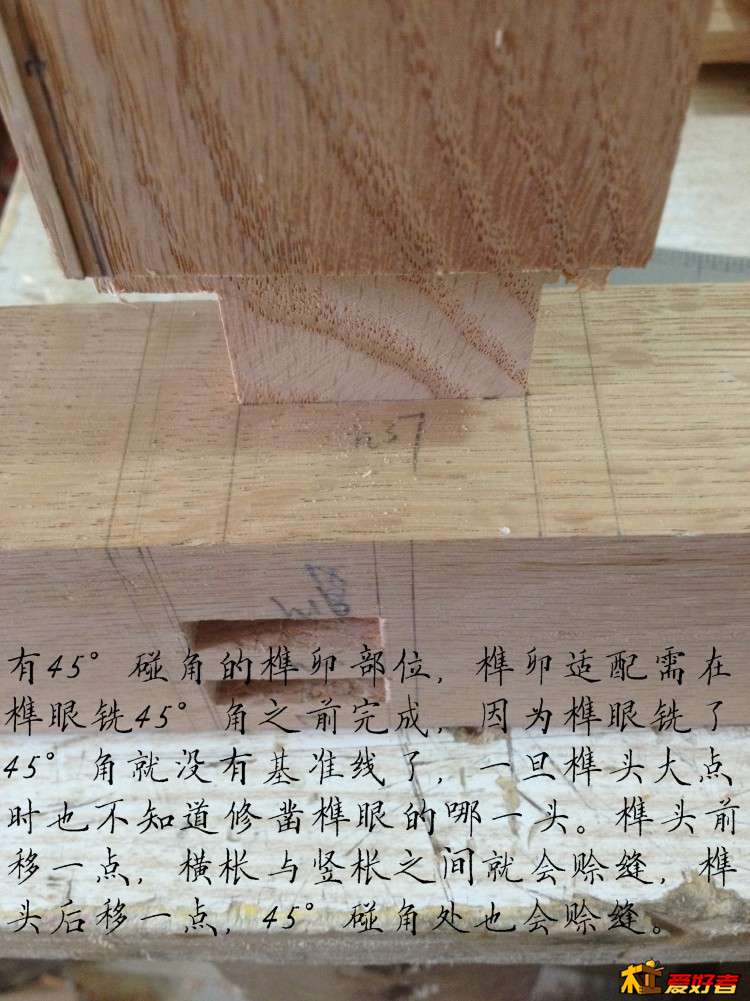 有45°碰角的榫卯部位，榫卯适配需在
榫眼铣45°角之前完成，因为榫眼铣了
45°角就没有基准线了，一旦榫头大点
时也不知道修凿榫眼的哪一头。榫头前
移一点，横枨与竖枨之间就会赊缝，榫
头后移一点，45°碰角处也会赊缝。
木工爱好者